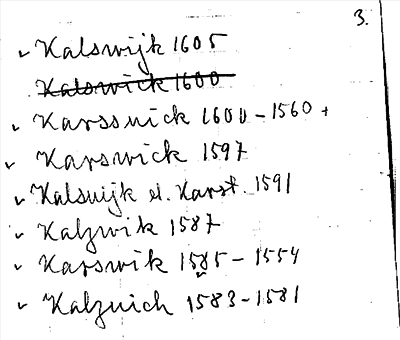 3.
✓ Kalswijk 1605
Kalswick 1600
✓ Karssuick 1600 - 1560 +
✓ Karswick 1597
✓ Kalsuijk el. Karst. 1591
✓ Kalzwik 1587
✓ Karswik 1585 - 1554
✓ Kalzuich 1583 - 1581